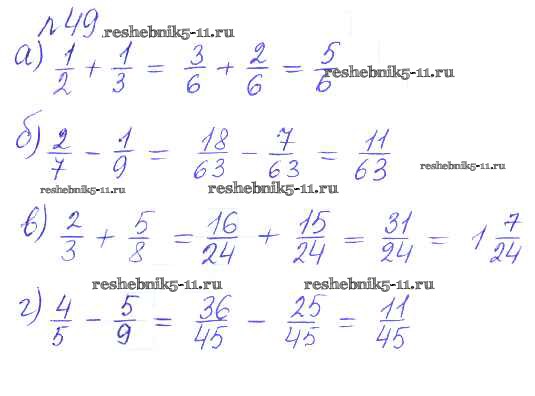 №49 reshebnik5-11.ru
а) 1/2 + 1/3 = 3/6 + 2/6 = 5/6 reshebnik5-11.ru
б) 2/7 - 1/9 = 18/63 - 7/63 = 11/63 reshebnik5-11.ru
reshebnik5-11.ru reshebnik5-11.ru
в) 2/3 + 5/8 = 16/24 + 15/24 = 31/24 = 1 7/24
reshebnik5-11.ru reshebnik5-11.ru
г) 4/5 - 5/9 = 36/45 - 25/45 = 11/45